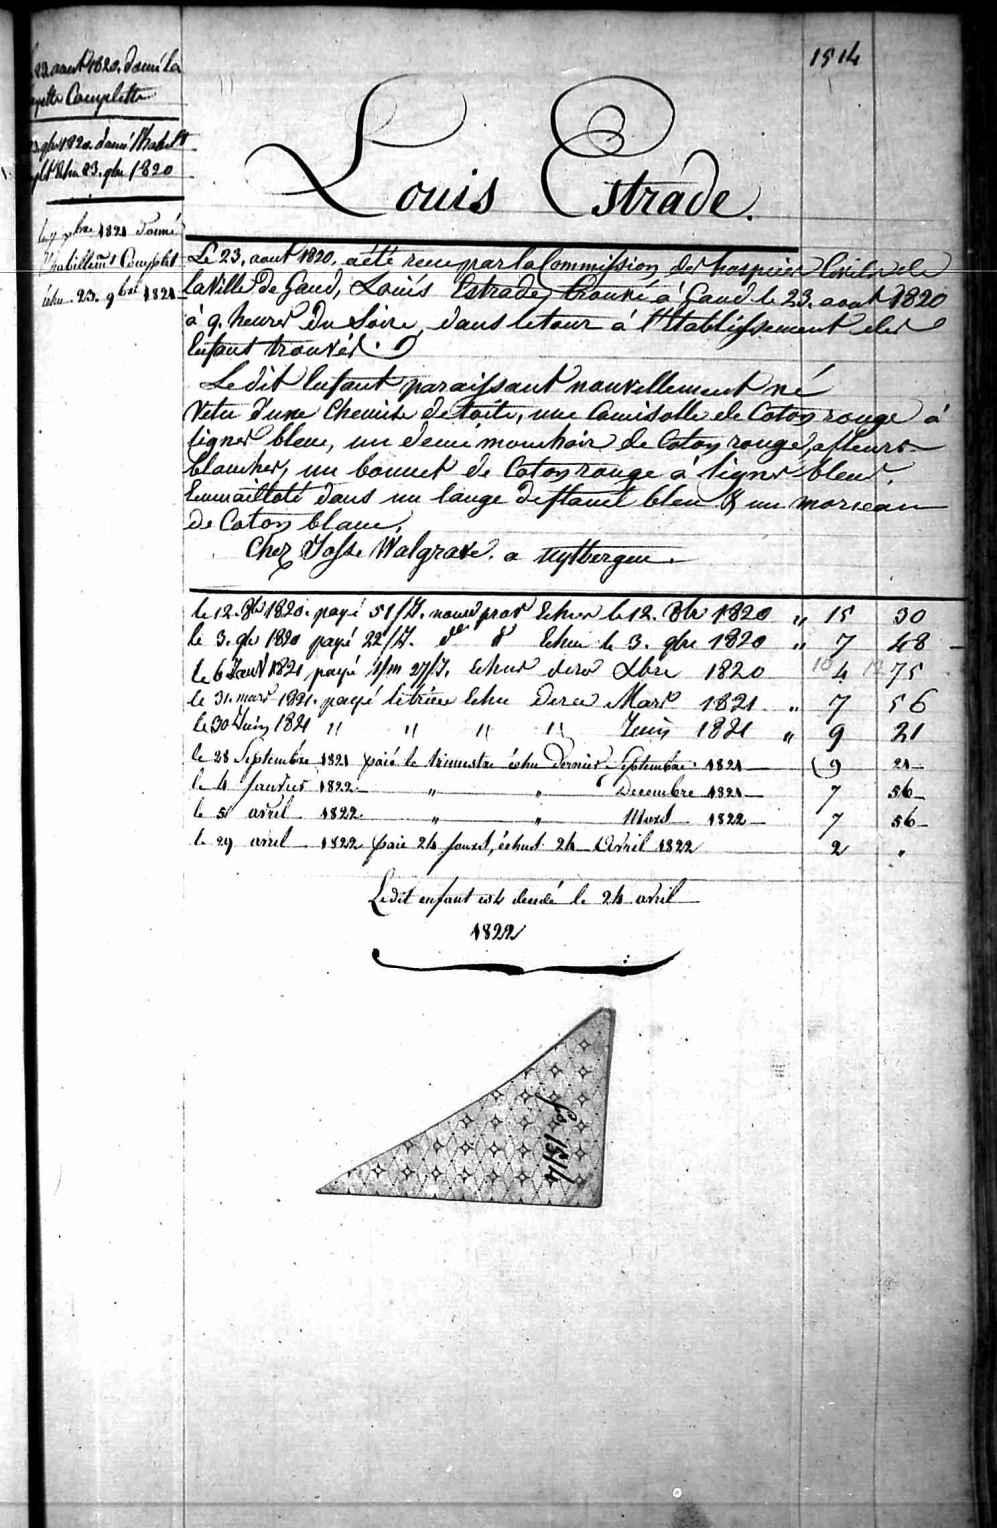 1514
23. aout 1820, donné la
Complette
23. gbre 1820
donné
l'habillemt Complet
échu 23. gbre 1821
Louis Estrade.
Le 23. aout 1820, a été recu par la Commission des hospices Civils de
la Ville de Gand, Louis Estrade, trouvé à Gand le 23. aout 1820
à 9. heures du Soire, dans le tour à l'Etablissement des
Enfans trouvés.
Le dit Enfant paraissant nouvellement né
Vetu d'une Chemise de toile, une Camisolle de Coton rouge à
lignes bleu, un demi mouchoir de Coton rouge, a fleurs
blanches, un bonnet de Coton rouge à lignes bleus.
Emmailloté dans un lange de flanel bleu & un morceau
de Coton blanc.
Chez Josse Walgrave. a uytbergen
le 12. 8bre 1820. payé 51/J. Echus le 12. 8bre 1820 " 15 30
le 3. gbre 1820 payé 22/J. do do Echu le 3. gbre 1820 " 7 48
le 6 Janv 1821 payé 1/m 27/J. Echus Xbre 1820 4 75
le 31. mars 1821. payé le trim Echu Mars 1821 " 7 56
le 30 Juin 1821 " " " " Juin 1821 " 9 21
le 28 Septembre 1821 paié le trimestre échu dernier Septembre 1821 9 21
le 4 Janvier 1822 " " Decembre 1821 7 56
le 5 avril 1822 " " Mars 1822 7 56
le 29 avril 1822 paié 24 jours, échus 24 Avril 1822 2 "
Le dit enfant est decedé le 24 avril
1822
fo. 1514